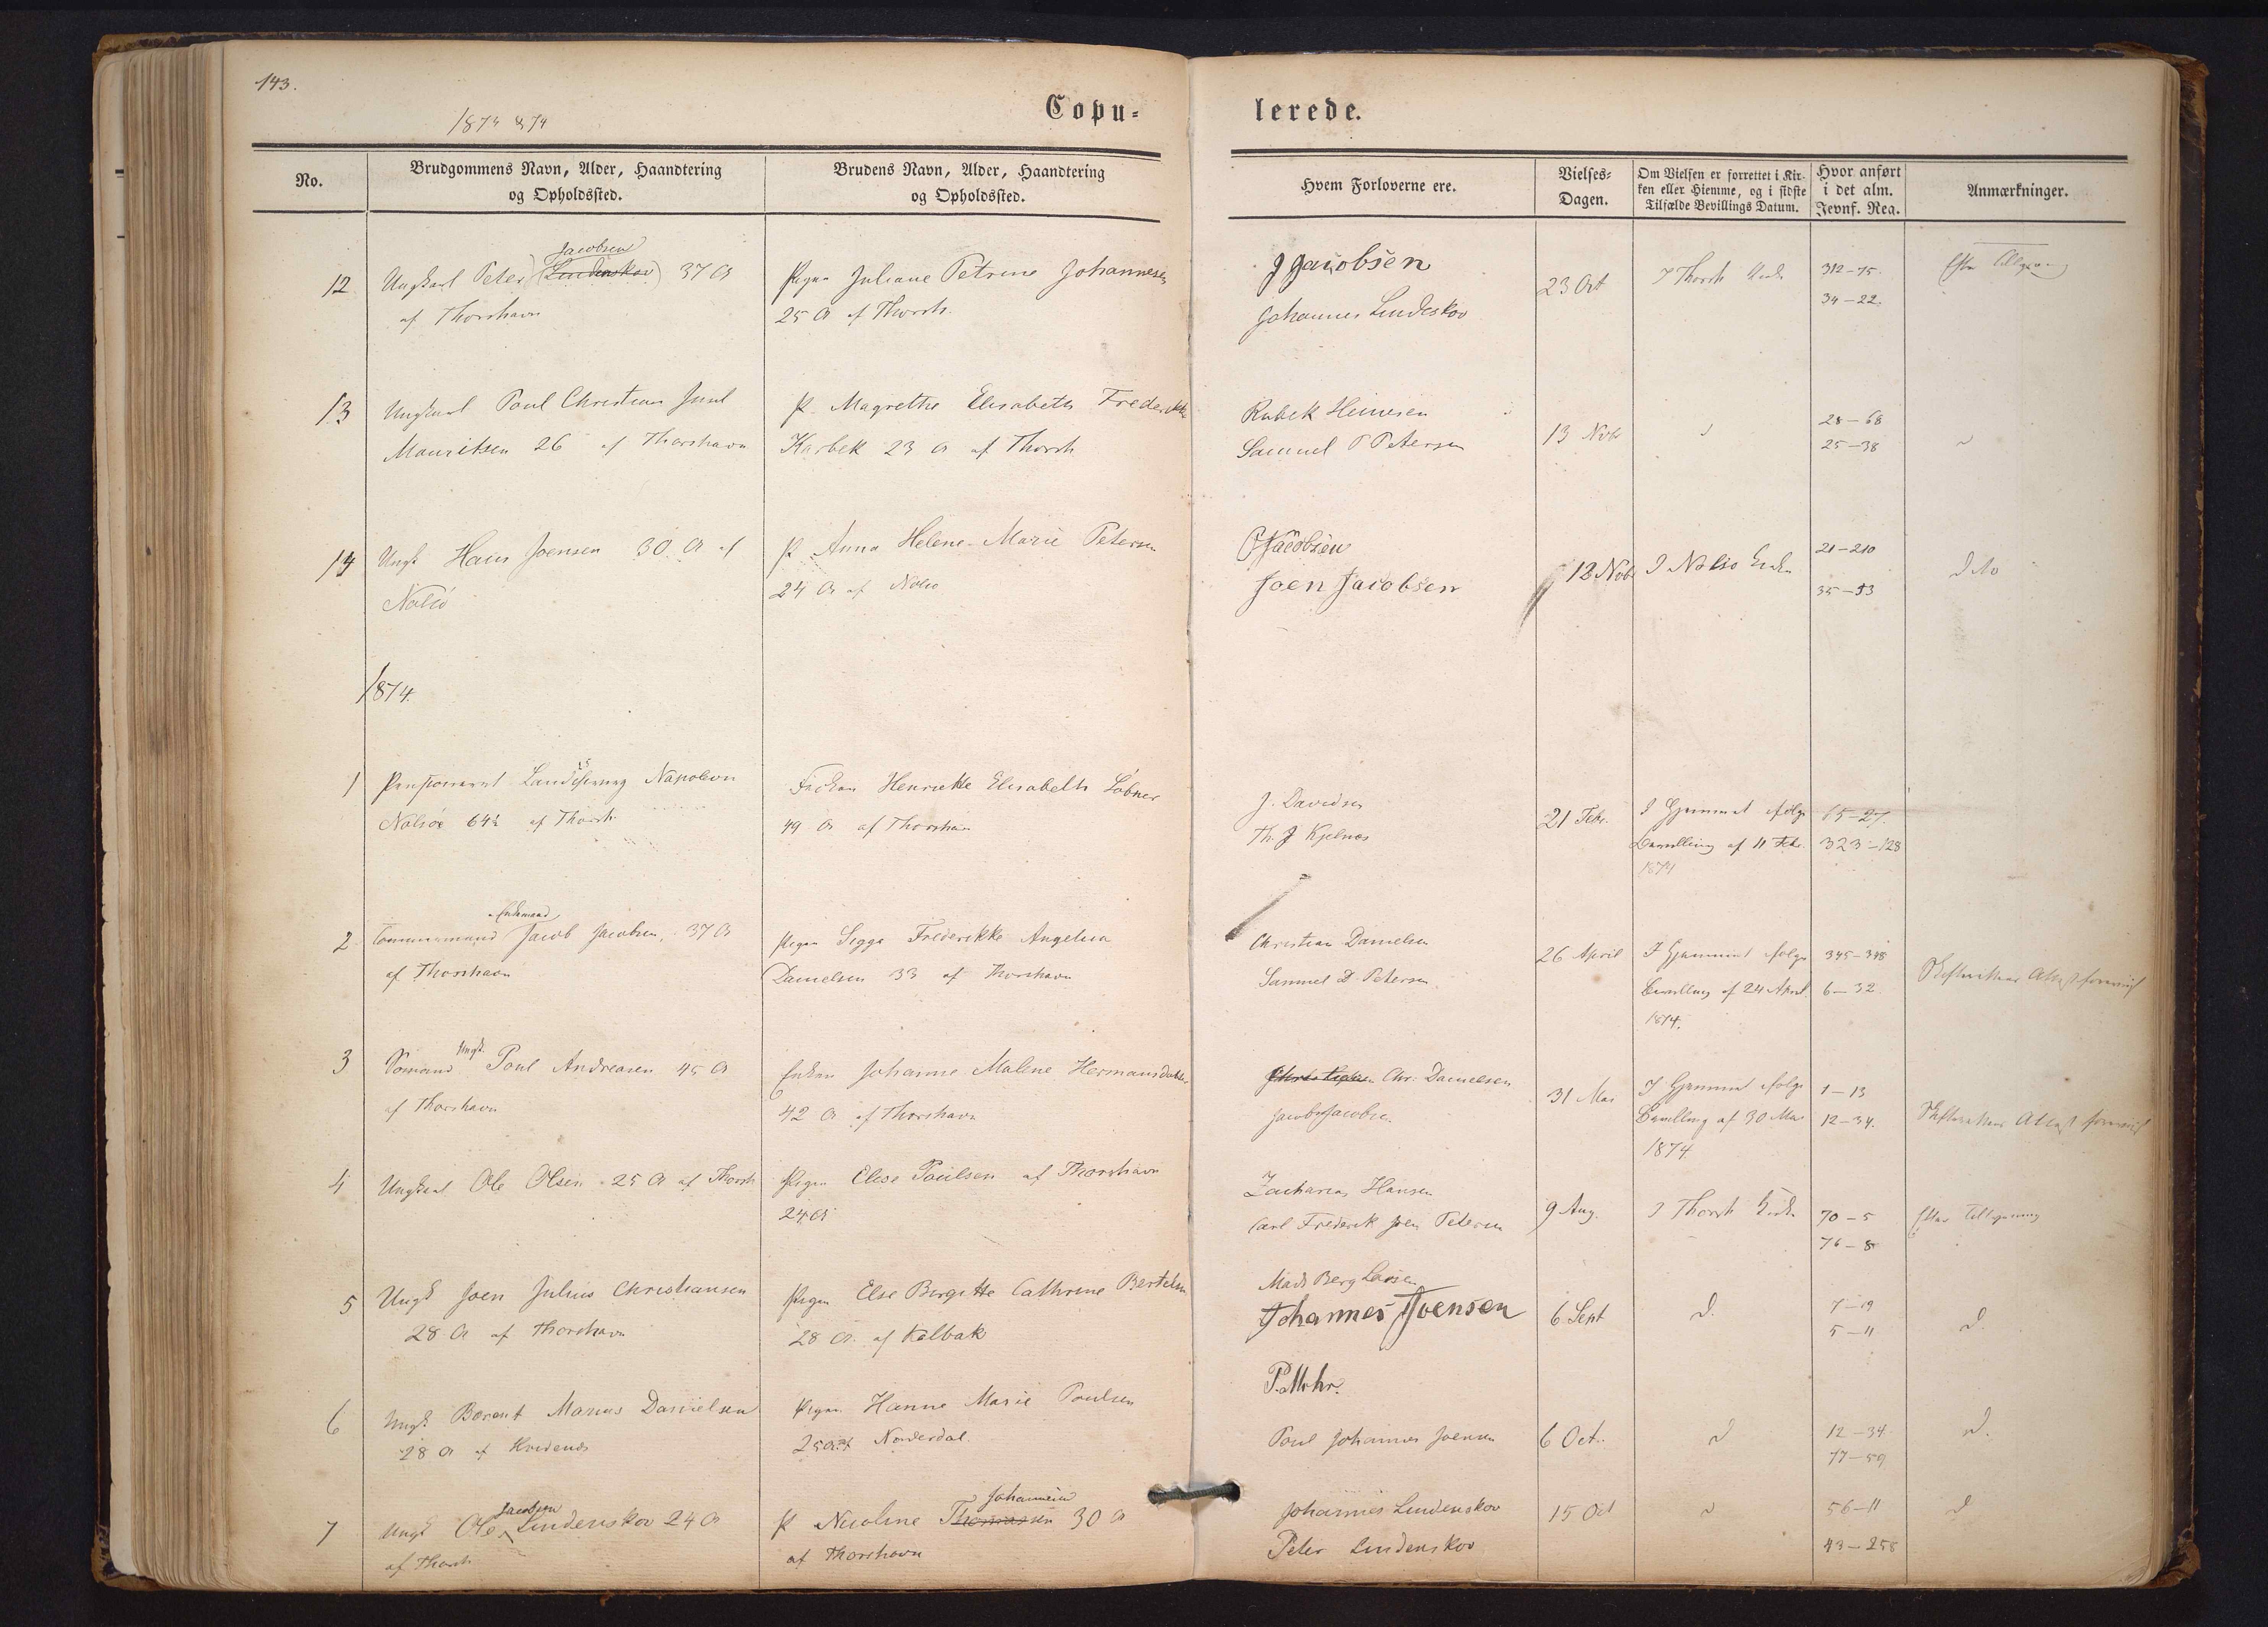 143.
1873 & 74
Copu=
lerede.
No.
Brudgommens Navn, Alder, Haandtering
og Opholdssted.
Brudens Navn, Alder, Haandtering
og Opholdssted.
Hvem Forloverne ere.
Vielses-
Dagen.
Om Vielsen er forrettet i Kir-
ken eller Hiemme, og i sidste
Tilfælde Bevillings Datum.
Hvor anført
i det alm.
Jevnf. Reg.
Anmærkninger.
Jacobsen
12 Ungkarl Peter (Lindenskov) 37 A
af Thorshavn
Pigen Juliane Petrine Johannesen
25 A af Thorsh.
J Jacobsen
Johannes Lindeskov
23 Oct
I Thorsh
312-75.
34-22.
Efter
13 Ungkarl Poul Christian Juul
Mouritsen 26 af Thorshavn
P. Magrethe Elisabeth Frederikke
Karbek 23 A af Thorsh
Rubek Heinesen
Samuel P Petersen
13 Nov
28-68
25-38
14 Ungk Hans Joensen 30 A af
Nolsö
P. Anna Helene Marie Petersen
24 A af Nolsö
Jacobsen
Joen Jacobsen
18 Nov
I Nolsö
21-210
35-53
1874.
1 Napoleon
Nolsöe 64½ af Thorsh
Frøken Henriette Elisabeth Löbner
49 A af Thorshavn
J. Davidsen
Th. J Kjelnæs
21 Febr.
I Hjemmet ifølge
Bevilling af 11 Feb.
1874
15-27.
323-128
Enkemand
2 Tømmermand Jacob Jacobsen, 37 A
af Thorshavn
Pigen Sigga Frederikke Angelica
Danielsen 33 af Thorshavn
Christian Danielsen
Samuel P Petersen
26 April
I Hjemmet ifølge
Bevilling af 24 April
1874.
345-348
6-32.
Skifterettens Attest
Ungk.
3 Sømand Poul Andreasen 45 A
af Thorshavn
Enken Johanne Malene Hermansdatter
42 A af Thorshavn
Chr. Danielsen
Jacob Jacobsen
31 Mai
I Hjemmet ifølge
Bevilling af 30 Mai
1874
1-13
12-34.
Skifterettens Attest
4 Ungkarl Ole Olsen 25 A af Thorsh
Pigen Elise Poulsen af Thorshavn
24 A
Zacharias Hansen
Carl Frederik Joen Petersen
9 Aug.
I Thorsh Kirke
70-5
76-8
Efter Tillysning
5 Ungk Joen Julius Christiansen
28 A af Thorshavn
Pigen Else Birgitte Cathrine Bertelsen
28 A. af Kalbak
Mads Berg Lassen
Johannes Joensen
6 Sept
d.
7-19
5-11
d.
6 Ungk Marius Danielsen
28 A af Hvidenæs
Pigen Hanne Marie Poulsen
25 A af Norderdal.
P. Mohr.
Poul Johannes Joensen
6 Oct.
d
12-34
77-59
d.
Jacobsen
7 Ungk Ole Lindenskov 24 A
af Thorsh
Johannesen
P. Nicoline Thomassen 30 A
af Thorshavn
Johannes Lindenskov
Peter Lindenskov
15 Oct
d
56-11
43-258
d